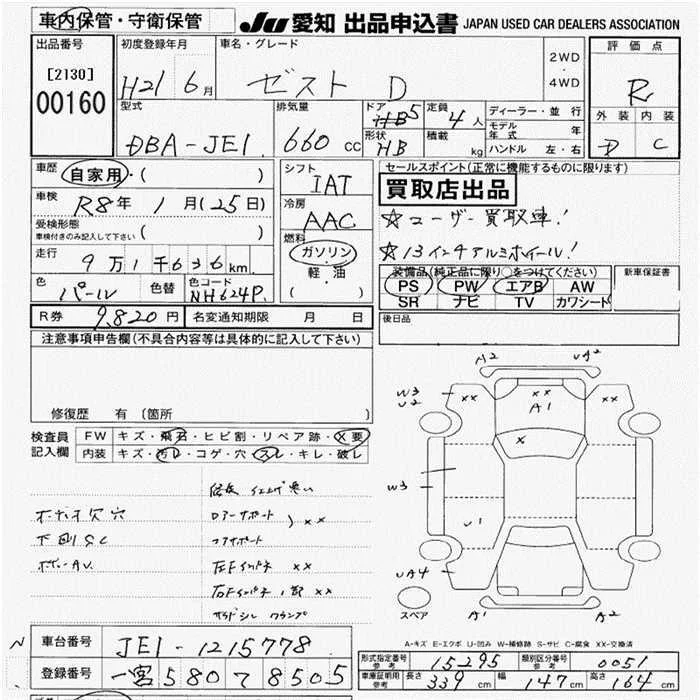 車内保管・守衛保管
JU 愛知 出品申込書 JAPAN USED CAR DEALERS ASSOCIATION
出品番号
[2130]
00160
初度登録年月
H21 6月
車名・グレード
ゼスト D
2WD
・
4WD
評価点
R
外装 内装
D C
型式
DBA-JE1
排気量
660 cc
ドア
5
形状
HB
定員
4人
積載
kg
ディーラー・並行
モデル年式 年
ハンドル 左・右
車歴
自家用・( )
車検
R8年 1月(25日)
受検形態
車検付きのみ記入して下さい ( )
走行
9万1千636km
色
パール
色替
色コード
NH624P
シフト
IAT
冷房
AAC
燃料
ガソリン
・
軽・油
( )
セールスポイント(正常に機能するものに限ります)
買取店出品
☆ユーザー買取車!
☆13インチアルミホイール!
装備品(純正品に限り○をつけてください)
PS PW エアB AW
SR ナビ TV カワシート
新車保証書
R券 9,820円 名変通知期限 月 日
後日品
注意事項申告欄(不具合内容等は具体的に記入して下さい)
修復歴 有(箇所 )
検査員記入欄
FW キズ・飛石・ヒビ割・リペア跡・X要
内装 キズ・汚レ・コゲ・穴・スレ・キレ・破レ
下回りSC
ロアーサポート
) xx
コアサポート
左Fインナー xx
右Fインナー 1部 xx
A2
UA2
W3
U2
xx
xx
A1
xx
x
W3
U1
UA4
スペア
A1
A2
A-キズ E-エクボ U-凹み W-補修跡 S-サビ C-腐食 XX-交換済
N
車台番号 JE1-1215778
登録番号 一宮 580 て 8505
形式指定番号
参考
15295
類別区分番号
参考
0051
車庫証明用
参考
長さ 339cm 幅 147cm 高さ 164cm